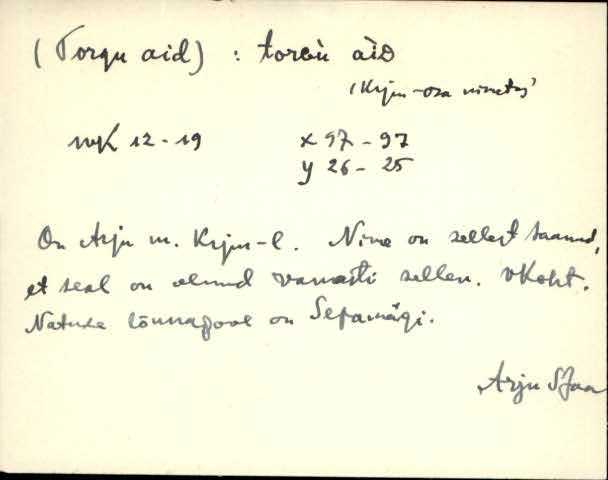 (Torgu aid) : torGù àid
(Krjm-osa nimetus)
mK 12-19 x 97 - 97
y 26 - 25
On Arju m. Krjm-l. Nime on sellest saanud,
et seal on olnud vanasti sellen. vKoht.
Natuke lõunapool on Sepamägi.
Arju